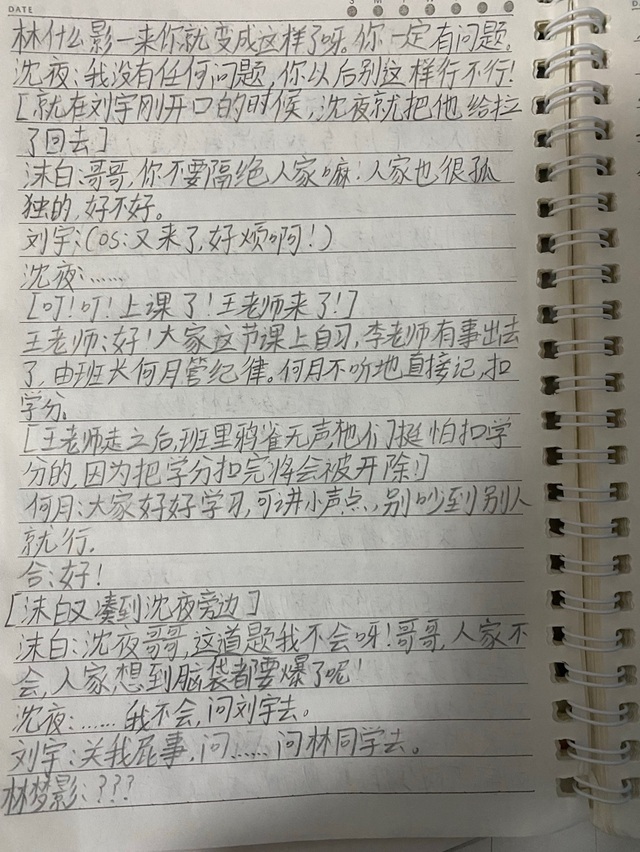 DATE
林什么影一来你就变成这样了呀。你一定有问题。
沈夜:我没有任何问题,你以后别这样行不行!
[就在刘宇刚开口的时候,沈夜就把他给拉
了回去]
沫白:哥哥,你不要隔绝人家嘛!人家也很孤
独的,好不好。
刘宇:(OS:又来了,好烦啊!)
沈夜:……
[叮!叮!上课了!王老师来了!]
王老师:好!大家这节课上自习,李老师有事出去
了,由班长何月管纪律。何月不听地直接记,扣
学分,
[王老师走之后,班里鸦雀无声他们挺怕扣学
分的,因为把学分扣完将会被开除!]
何月:大家好好学习,可讲小声点,别吵到别人
就行.
合:好!
[沫白又凑到沈夜旁边]
沫白:沈夜哥哥,这道题我不会呀!哥哥,人家不
会,人家想到脑袋都要爆了呢!
沈夜:……我不会,问刘宇去。
刘宇:关我屁事,问……问林同学去。
林梦影:???